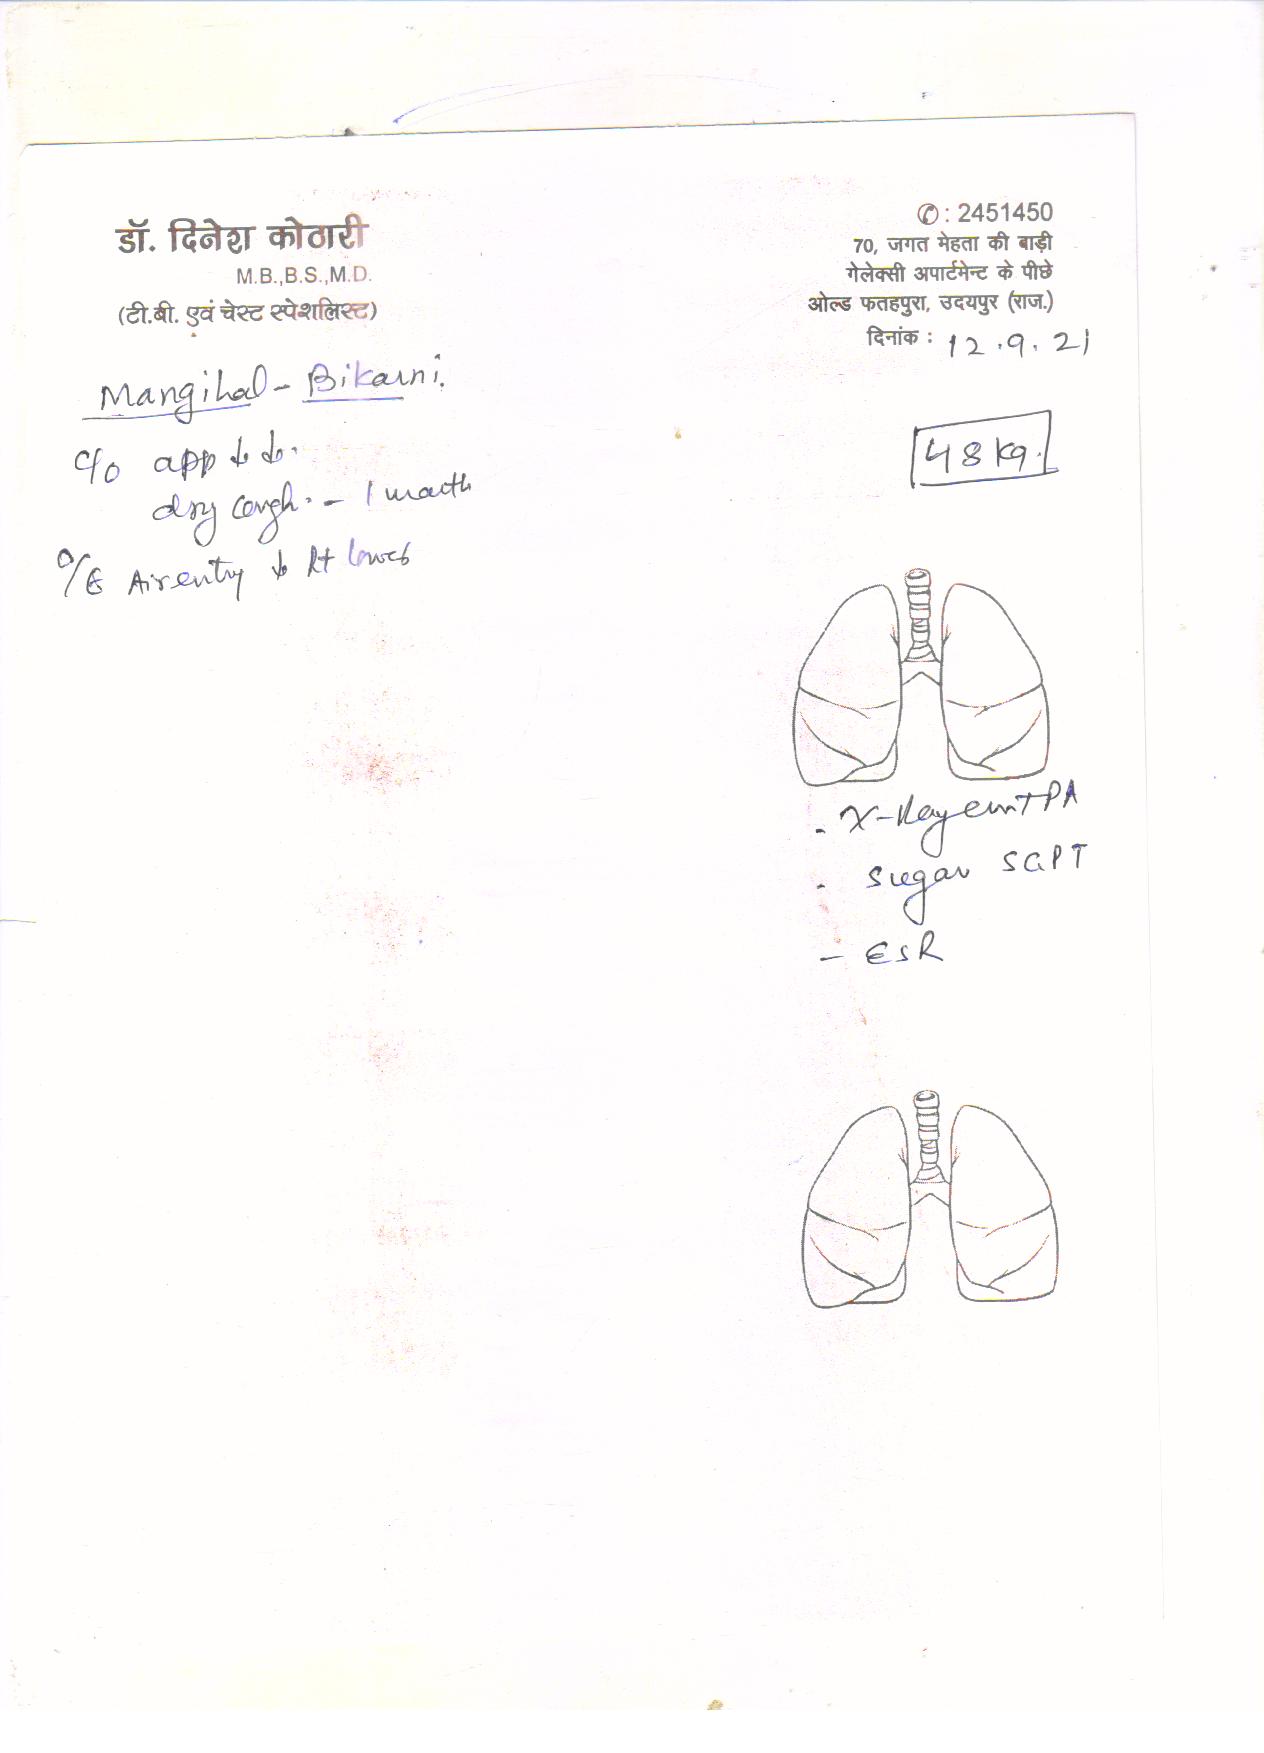 डॉ. दिनेश कोठारी
M.B.,B.S.,M.D.
(टी.बी. एवं चेस्ट स्पेशलिस्ट)
✆ : 2451450
70, जगत मेहता की बाड़ी
गेलेक्सी अपार्टमेन्ट के पीछे
ओल्ड फतहपुरा, उदयपुर (राज.)
दिनांक : 12.9.21
Mangilal - Bikarni.
48 kg.
C/o app ↓ ↓.
dry cough. - 1 month
O/E Air entry ↓ Rt lower
- X-Ray PA
- Sugar SGPT
- ESR